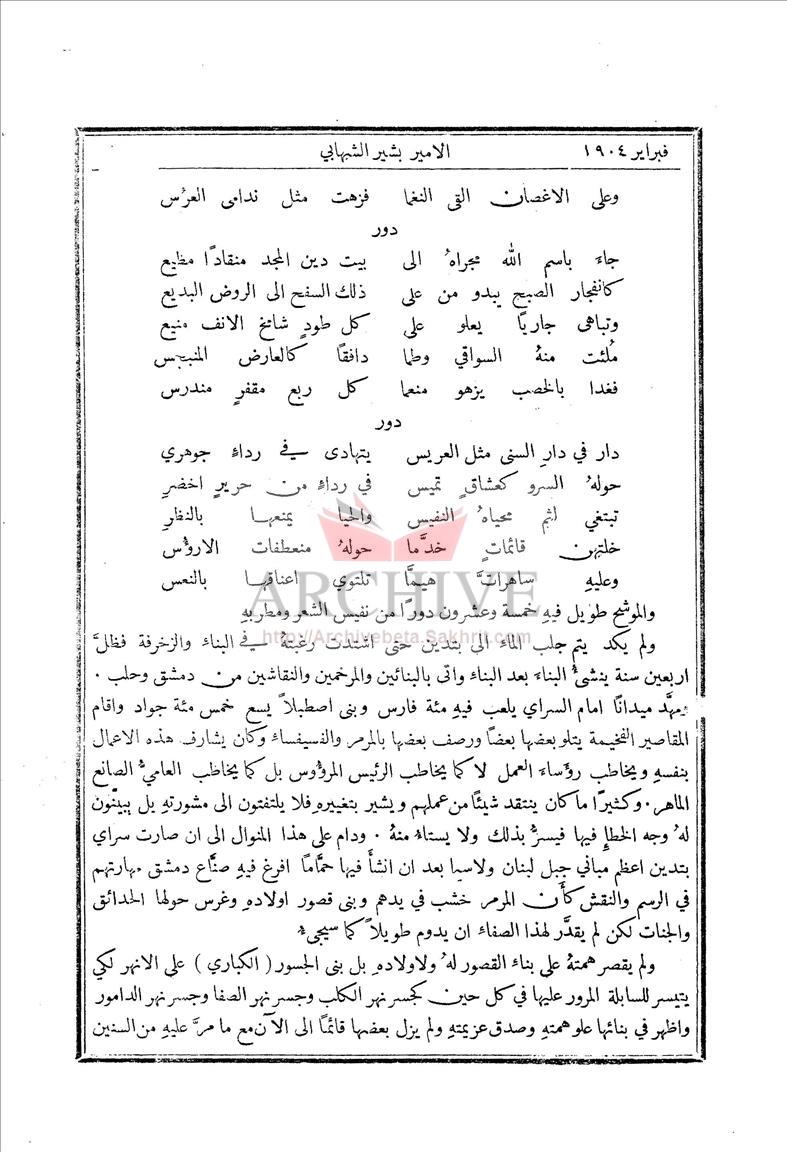 فبراير ١٩٠٤ الامير بشير الشهابي
وعلى الاغصان القى النغما فزهت مثل ندامى العرس
دور
جاءَ باسم الله مجراهُ الى بيت دين المجد منقادًا مطيع
كانفجار الصبح يبدو من على ذلك السفح الى الروض البديع
وتباهى جاريًا يعلو على كل طودٍ شامخ الانف منيع
مُلئت منهُ السواقي وطما دافقًا كالعارض المنبجس
فغدا بالخصب يزهو منعما كل ربع مقفرٍ مندرس
دور
دار في دارِ السنى مثل العريس يتهادى في رداءٍ جوهري
حولهُ السرو كعشاقٍ تميس في رداءٍ من حريرٍ اخضرِ
تبتغي لثم محياهُ النفيس والحيا يمنعها بالنظرِ
خلتهن قائماتٍ خدَّما حولهُ منعطفات الارؤس
وعليهِ ساهراتٌ هيمَّا تلتوي اعناقها بالنعس
والموشح طويل فيهِ خمسة وعشرون دورًا من نفيس الشعر ومطربهِ
ولم يكد يتم جلب الماء الى بتدين حتى اشتدت رغبتهُ في البناء والزخرفة فظلَّ
اربعين سنة ينشئُ البناءَ بعد البناء واتى بالبنائين والمرخمين والنقاشين من دمشق وحلب .
ومهَّد ميدانًا امام السراي يلعب فيهِ مئة فارس وبنى اصطبلاً يسع خمس مئة جواد واقام
المقاصير الفخيمة يتلو بعضها بعضًا ورصف بعضها بالمرمر والفسيفساء وكان يشارف هذه الاعمال
بنفسهِ ويخاطب رؤساءَ العمل لا كما يخاطب الرئيس المرؤوس بل كما يخاطب العاميُّ الصانع
الماهر . وكثيرًا ما كان ينتقد شيئًا من عملهم ويشير بتغييره فلا يلتفتون الى مشورته بل يبينون
لهُ وجه الخطإِ فيها فيسرُّ بذلك ولا يستاءُ منهُ . ودام على هذا المنوال الى ان صارت سراي
بتدين اعظم مباني جبل لبنان ولاسيا بعد ان انشأَ فيها حمَّامًا افرغ فيهِ صنَّاع دمشق مهارتهم
في الرسم والنقش كأَن المرمر خشب في يدهم وبنى قصور اولاده وغرس حولها الحدائق
والجنات لكن لم يقدَّر لهذا الصفاء ان يدوم طويلاً كما سيجيءُ
ولم يقصر همتهُ على بناء القصور لهُ ولاولاده بل بنى الجسور ( الكباري ) على الانهر لكي
يتيسر للسابلة المرور عليها في كل حين كجسر نهر الكلب وجسر نهر الصفا وجسر نهر الدامور
واظهر في بنائها علو همتهِ وصدق عزيمتهِ ولم يزل بعضها قائمًا الى الآن مع ما مرَّ عليهِ من السنين
ARCHIVE
http://Archivebeta.Sakhrit.com